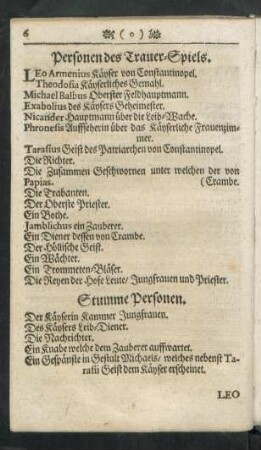 6 ( o )
Personen des Trauer-Spiels.
LEo Armenius Käyser von Constantinopel.
Theodosia Käyserliches Gemahl.
Michael Balbus Oberster Feldhauptmann.
Exabolius des Käysers Geheimester.
Nicander Hauptmann über die Leib-Wache.
Phronesis Auffseherin über das Käyserliche Frauenzim-
mer.
Tarasius Geist des Patriarchen von Constantinopel.
Die Richter.
Die Zusammen Geschwornen unter welchen der von
Papias. (Crambe.
Die Trabanten.
Der Oberste Priester.
Ein Bothe.
Jamblichus ein Zauberer.
Ein Diener dessen von Crambe.
Der Höllische Geist.
Ein Wächter.
Ein Trommeten-Bläser.
Die Reyen der Hofe Leute/ Jungfrauen und Priester.
Stumme Personen.
Der Käyserin Kammer Jungfrauen.
Des Käysers Leib/Diener.
Die Nachrichter.
Ein Knabe welche dem Zauberer auffwartet.
Ein Gespänste in Gestalt Michaels/ welches nebenst Ta-
rasii Geist dem Käyser erscheinet.
LEO